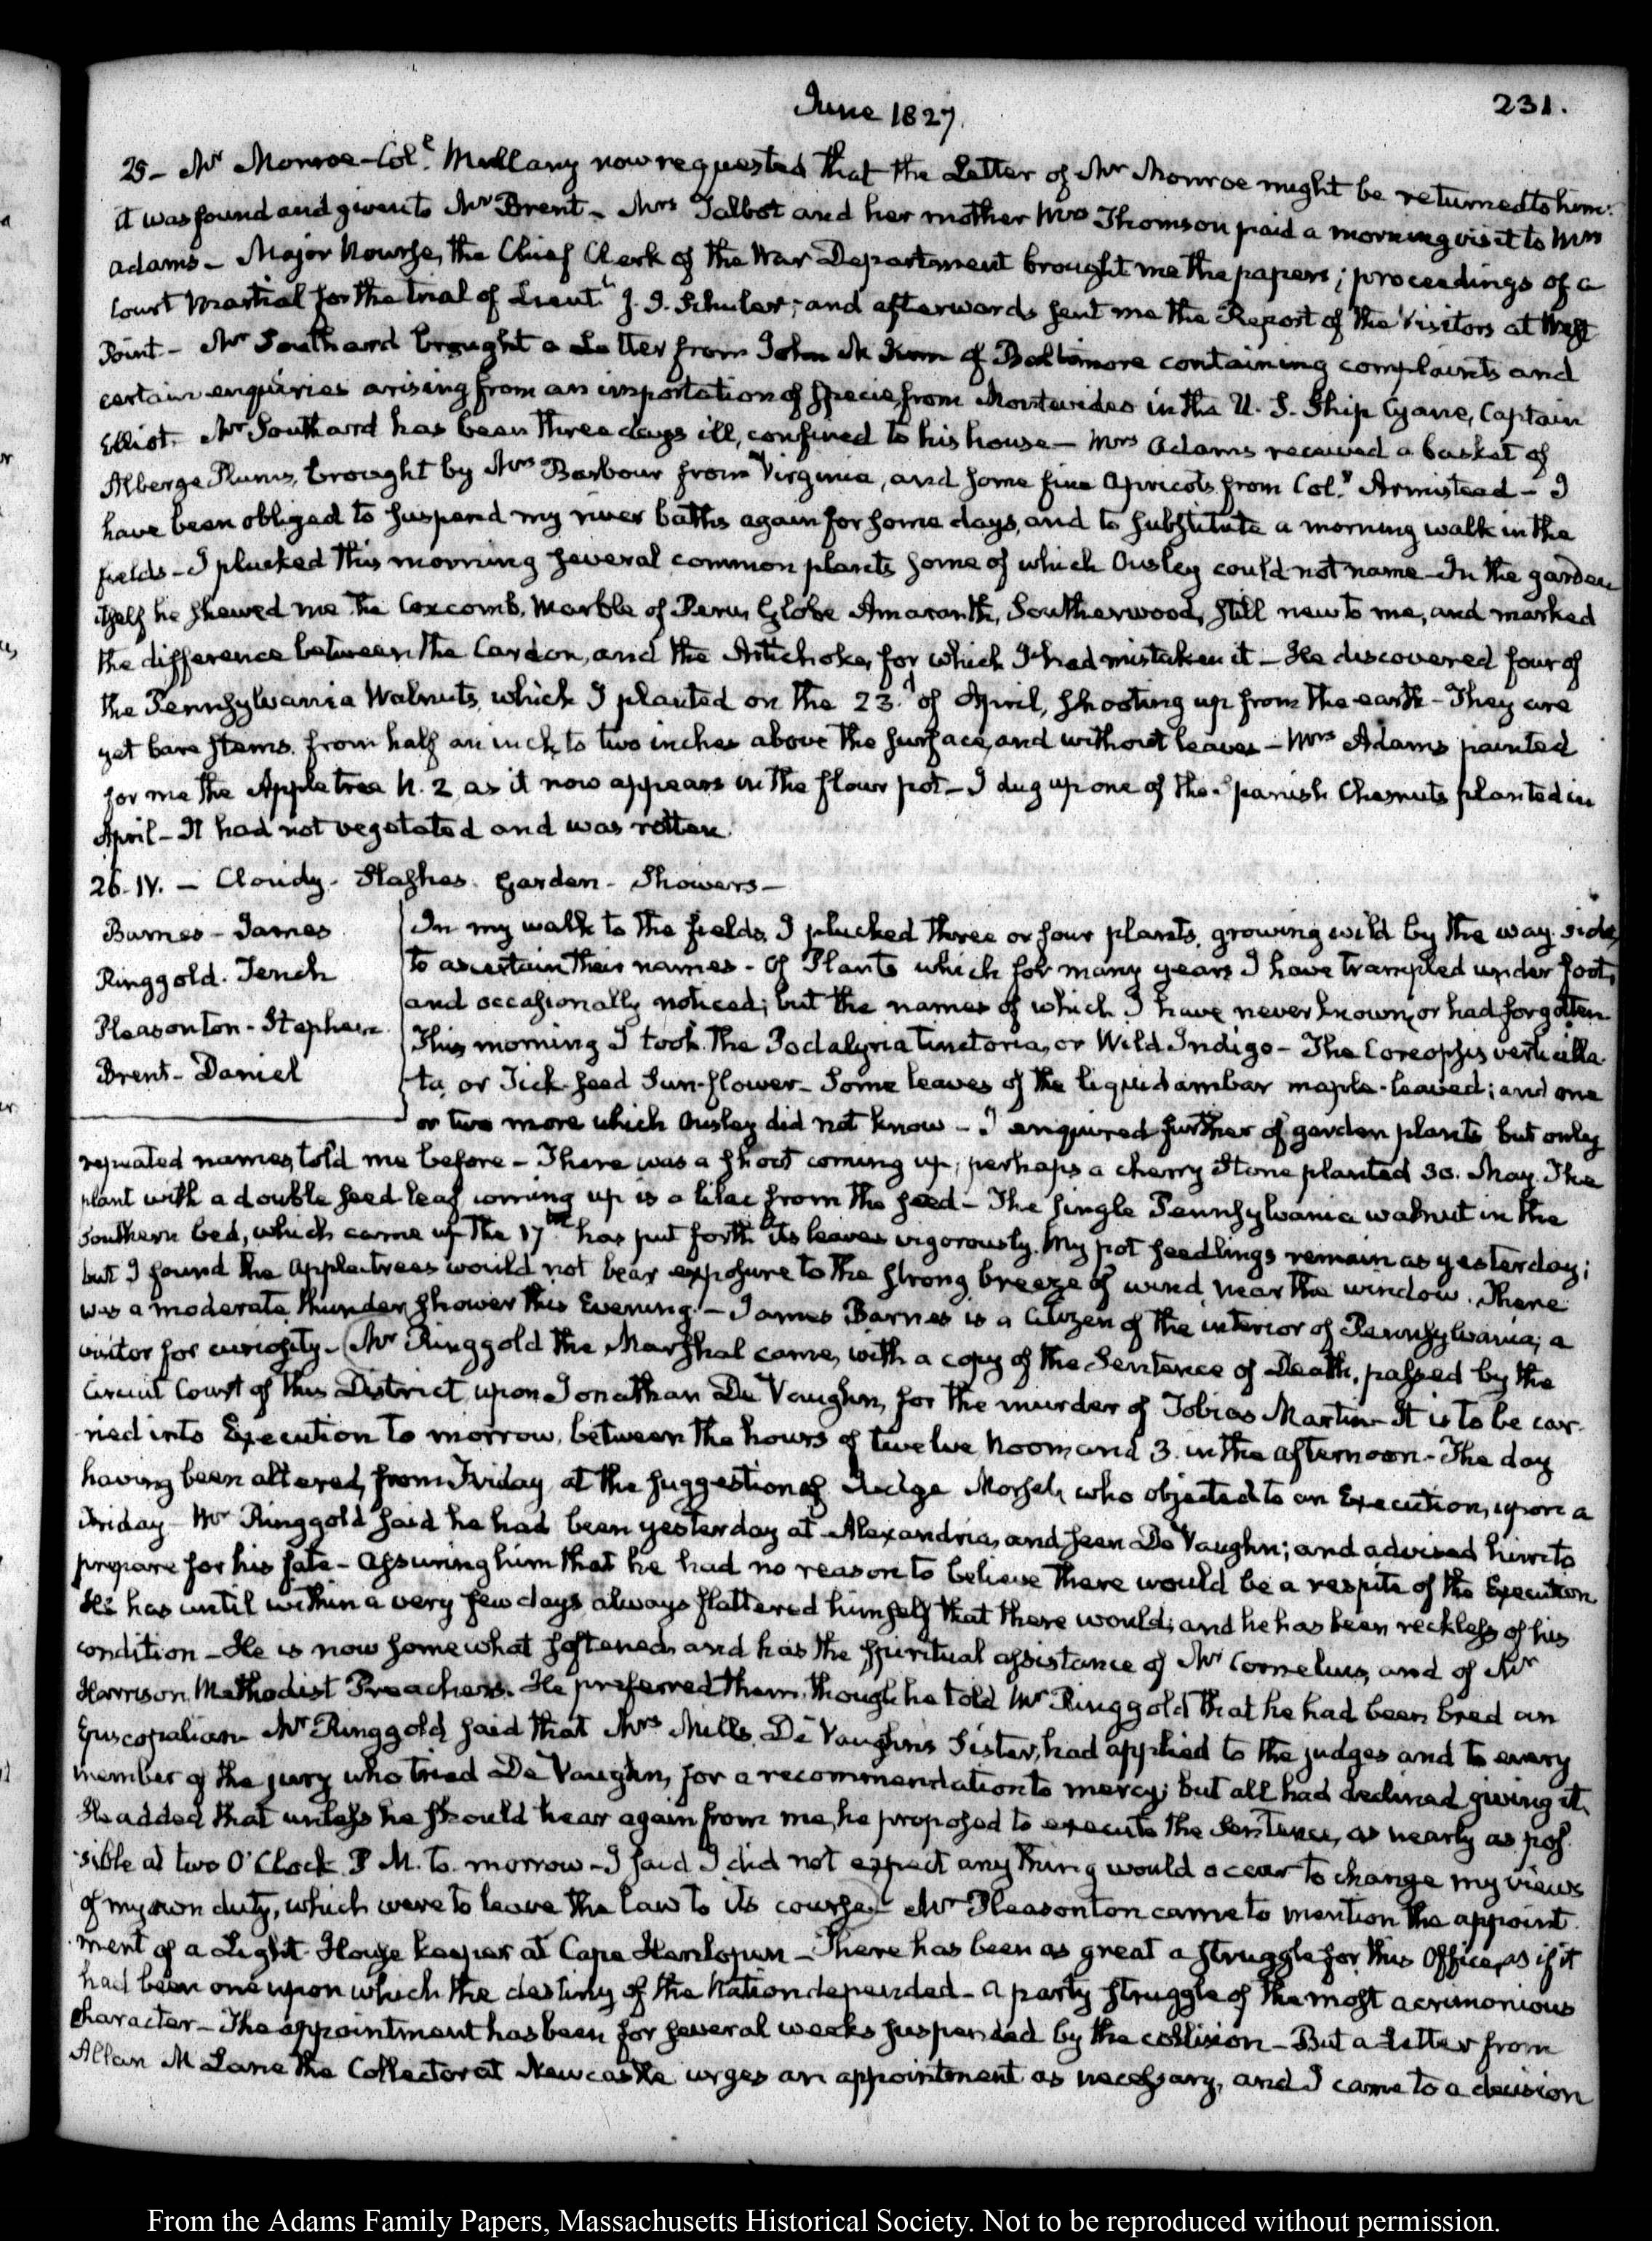 June 1827.
231.
25— Mr Monroe—Coll. Mullany now requested that the Letter of Mr Monroe might be returned to him:
it was found and given to Mr Brent— Mrs Talbot and her mother Mrs Thomson paid a morning visit to Mrs
Adams— Major Nourse, the Chief Clerk of the War Department brought me the papers; proceedings of a
Court Martial for the trial of Lieutt J. S. Schuler; and afterwards sent me the Report of the Visitors at West
Point— Mr Southard brought a Letter from John M. of Baltimore containing complaints and
certain enquiries arising from an importation of Specie, from Montevideo in the U. S. Ship Cyane, Captain
Elliot. Mr Southard has been three days ill, confined to his house— Mrs Adams received a basket of
Alberge Plums, brought by Mrs Barbour from Virginia, and some fine Apricots from Coll. Armistead— I
have been obliged to suspend my river baths again for some days, and to substitute a morning walk in the
fields— I plucked this morning several common plants some of which Ousley could not name—In the garden
itself he shewed me the Coxcomb, Marble of Peru, Globe Amaranth, Southerwood, still new to me, and marked
the difference between the Cardon, and the Artichoke, for which I had mistaken it— He discovered four of
the Pennsylvania Walnuts, which I planted on the 23.d of April, shooting up from the earth— They are
yet bare stems, from half an inch to two inches above the surface, and without leaves— Mrs Adams painted
for me the Apple tree N. 2 as it now appears in the flour pot— I dug up one of the Spanish Chesnuts planted in
April— It had not vegetated and was rotten.
26. IV. — Cloudy. Flashes. Garden— Showers—
Barnes— James
Ringgold. Tench
Pleasonton— Stephen
Brent— Daniel
In my walk to the fields, I plucked three or four plants, growing wild by the way side,
to ascertain their names— Of Plants which for many years I have trampled under foot,
and occasionally noticed; but the names of which I have never known, or had forgotten.
This morning I took the Podalyria tinctoria, or Wild Indigo— The Coreopsis verticilla-
ta, or Tick-seed Sun-flower— Some leaves of the liquidambar maple-leaved; and one
or two more which Ousley did not know— I enquired further of garden plants but only
repeated names, told me before— There was a shoot coming up, perhaps a cherry Stone planted 30. May. The
plant with a double seed leaf coming up is a lilac from the seed— The single Pennsylvania walnut in the
Southern bed, which came up the 17th has put forth its leaves vigorously. My pot seedlings remain as yesterday;
but I found the Apple trees would not bear exposure to the strong breeze of wind near the window. There
was a moderate thunder shower this Evening.— James Barnes is a Citizen of the interior of Pennsylvania; a
visitor for curiosity— Mr Ringgold the Marshal came, with a copy of the Sentence of Death, passed by the
Circuit Court of this District, upon Jonathan De Vaughn, for the murder of Tobias Martin— It is to be car-
ried into Execution to morrow, between the hours of twelve Noon, and 3. in the afternoon— The day
having been altered, from Friday at the suggestion of Judge Morsel, who objected to an Execution, upon a
Friday— Mr Ringgold said he had been yesterday at Alexandria, and seen De Vaughn; and advised him to
prepare for his fate— assuring him that he had no reason to believe there would be a respite of the Execution
He has until within a very few days always flattered himself that there would; and he has been reckless of his
condition— He is now somewhat softened, and has the spiritual assistance of Mr Cornelius, and of Mr
Harrison, Methodist Preachers. He preferred them, though he told Mr Ringgold that he had been bred an
Episcopalian— Mr Ringgold said that Mrs Mills, De Vaughn's Sister, had applied to the judges and to every
member of the jury who tried De Vaughn, for a recommendation to mercy; but all had declined giving it.
He added that unless he should hear again from me, he proposed to execute the Sentence, as nearly as pos-
sible at two O'Clock P. M. to morrow— I said I did not expect any thing would occur to change my views
of my own duty, which were to leave the law to its course— Mr Pleasonton came to mention the appoint-
ment of a Light House keeper at Cape Henlopen— There has been as great a struggle for this Office, as if it
had been one upon which the destiny of the Nation depended— a party struggle of the most acrimonious
character— The appointment has been for several weeks suspended by the collision— But a Letter from
Allan M Lane the Collector at Newcastle urges an appointment as necessary, and I came to a decision
From the Adams Family Papers, Massachusetts Historical Society. Not to be reproduced without permission.